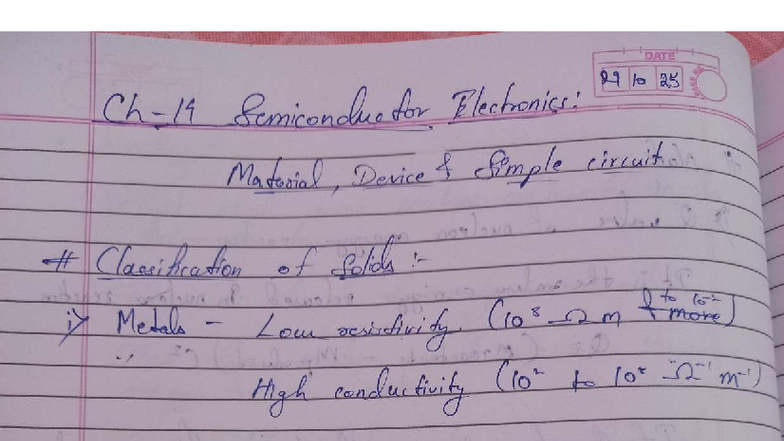 DATE
29 10 25
Ch-14 Semiconductor Electronics:
Material, Device & Simple circuit
# Classification of Solids :-
i) Metals - Low resistivity (10⁸ Ω m to 10⁻² & more)
High conductivity (10² to 10⁸ Ω⁻¹ m⁻¹)